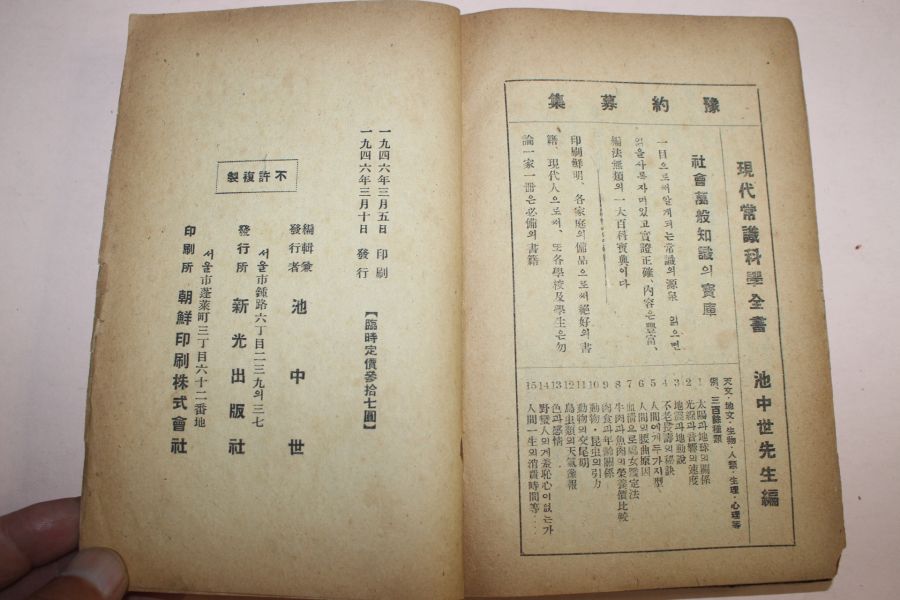 豫約募集
現代常識科學全書 池中世先生編
社會萬般知識의寶庫
一目으로써알게되는常識의源泉 읽으면
읽을사록자미있고實證正確、內容은豐富、
編法無類의一大百科
이다
印刷鮮明、各家庭의備品으로써絕好의書
籍、現代人으로써、또各學校及學生은勿
論一家一冊은必備의書籍
天文・地文・生物・人類・生理・心理等
例、三百餘種類
1 太陽과地球의關係
2 光線과音響의速度
3 地震과地動說
4 不老長壽의秘訣
5 人間에게두가지型
6 人間의腰曲原因
7 血淸으로處女鑑定法
8 牛肉과魚肉의榮養價比較
9 肉食과年齡關係
10 動物・昆虫의引力
11 動物의交尾期
12 鳥虫類의天氣豫報
13 色과感情
14 野蠻人의게羞恥心이없는가
15 人間一生의消費時間等…
一九四六年三月五日 印刷
一九四六年三月十日 發行
【臨時定價參拾七圓】
編輯兼
發行者 池中世
서울市鍾路六丁目二三九의三七
發行所 新光出版社
서울市蓬萊町三丁目六十二番地
印刷所 朝鮮印刷株式會社
不許複製